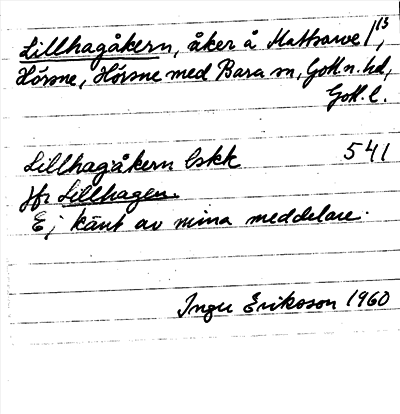 Lillhagåkern, åker å Mattsarve 1/13,
Hörsne, Hörsne med Bara sn, Gotl. n. hd,
Gotl. l.
Lillhagåkern lskk 541
jfr Lillhagen.
Ej känt av mina meddelare.
Inger Eriksson 1960